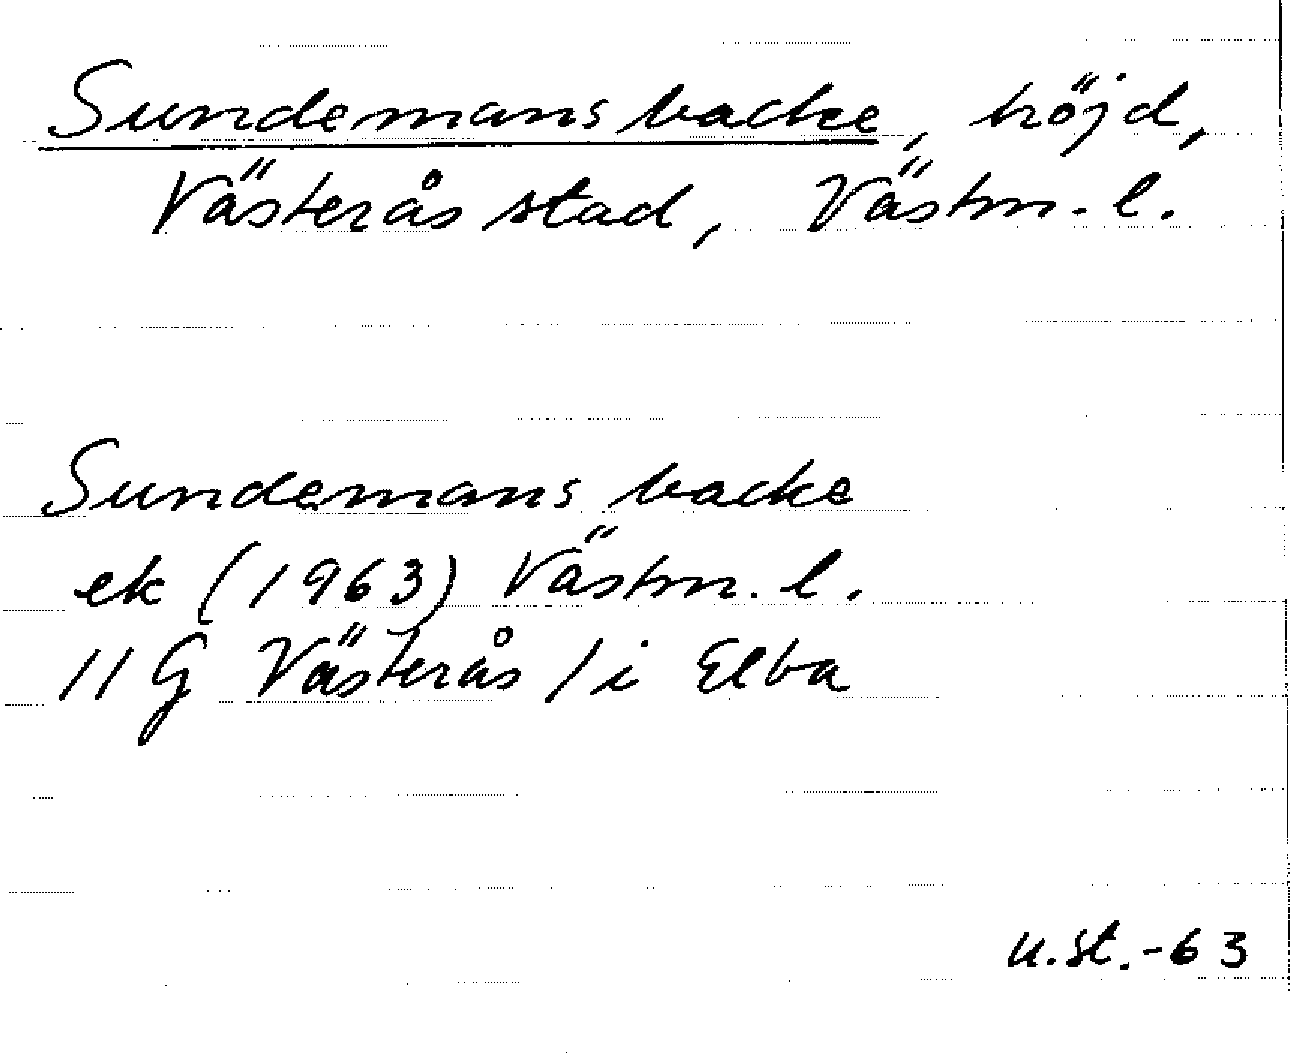 Sundemans backe, höjd,
Västerås stad, Västm. l.
Sundemans backe
ek (1963) Västm. l.
11 G Västerås / i Elba
u.st.-63